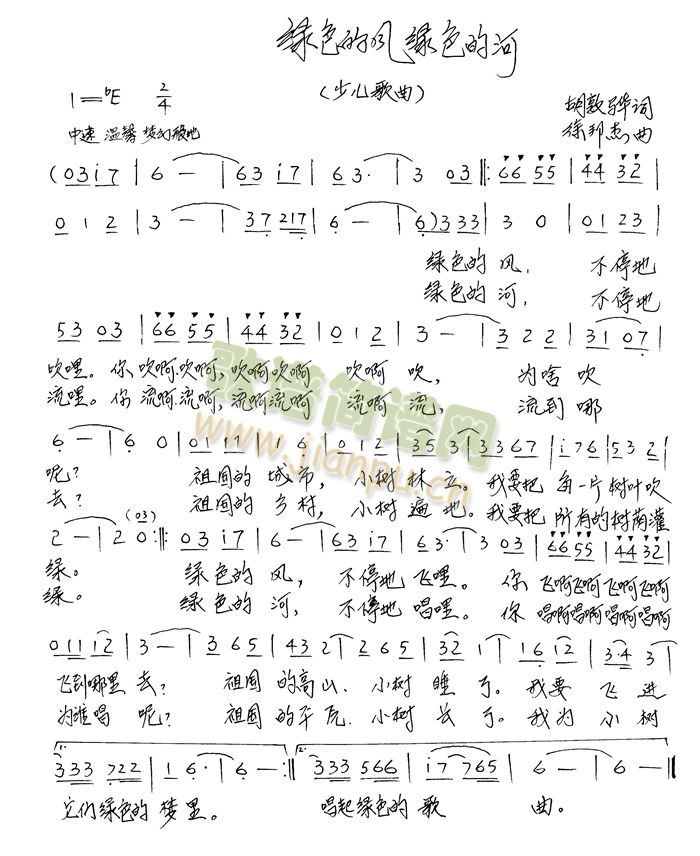 绿色的风 绿色的河
(少儿歌曲)
1=♭E 2/4
胡敦骅词
中速 温馨 梦幻般地
徐邦杰曲
(03i7 | 6 — | 63 i7 | 63· | 3 03 ‖: 66 55 | 44 32 |
012 | 3 — | 37 217 | 6 — | 6) 333 | 3 0 | 01 23 |
绿色的 风, 不停地
绿色的 河, 不停地
53 03 | 66 55 | 44 32 | 012 | 3 — | 322 | 31 07 |
吹哩。你 吹啊.吹啊,吹啊吹啊 吹啊 吹, 为啥 吹
流哩。你 流啊.流啊,流啊流啊 流啊 流, 流到 哪
6 — | 6 0 | 01 11 | 1 6 | 012 | 35 3 | 33 67 | i76 | 532 |
呢? 祖国的 城市, 小树 林立。我要把 每一片 树叶吹
去? 祖国的 乡村, 小树 遍地。我要把 所有的 树荫灌
2 — | 2 0 (03) :‖: 03 i7 | 6 — | 63 i7 | 63· | 3 03 | 66 55 | 44 32 |
绿。 绿色的 风, 不停地 飞哩。 你 飞啊飞啊飞啊飞啊
绿。 绿色的 河, 不停地 唱哩。 你 唱啊唱啊唱啊唱啊
011 12 | 3 — | 3 65 | 43 2 | 2 65 | 3 2 | 32 1 | 16 12 | 3·4 3 |
飞到哪里 去? 祖国 的高山. 小树 睡了。我要 飞进
为谁唱 呢? 祖国 的平原. 小树 长了。我为 小树
1. 333 722 | 1 6· | 6 — :‖ 2. 333 566 | i7 765 | 6 — | 6 — ‖
它们绿色的 梦里。 唱起绿色的 歌 曲。
歌谱简谱网
www.jianpu.cn